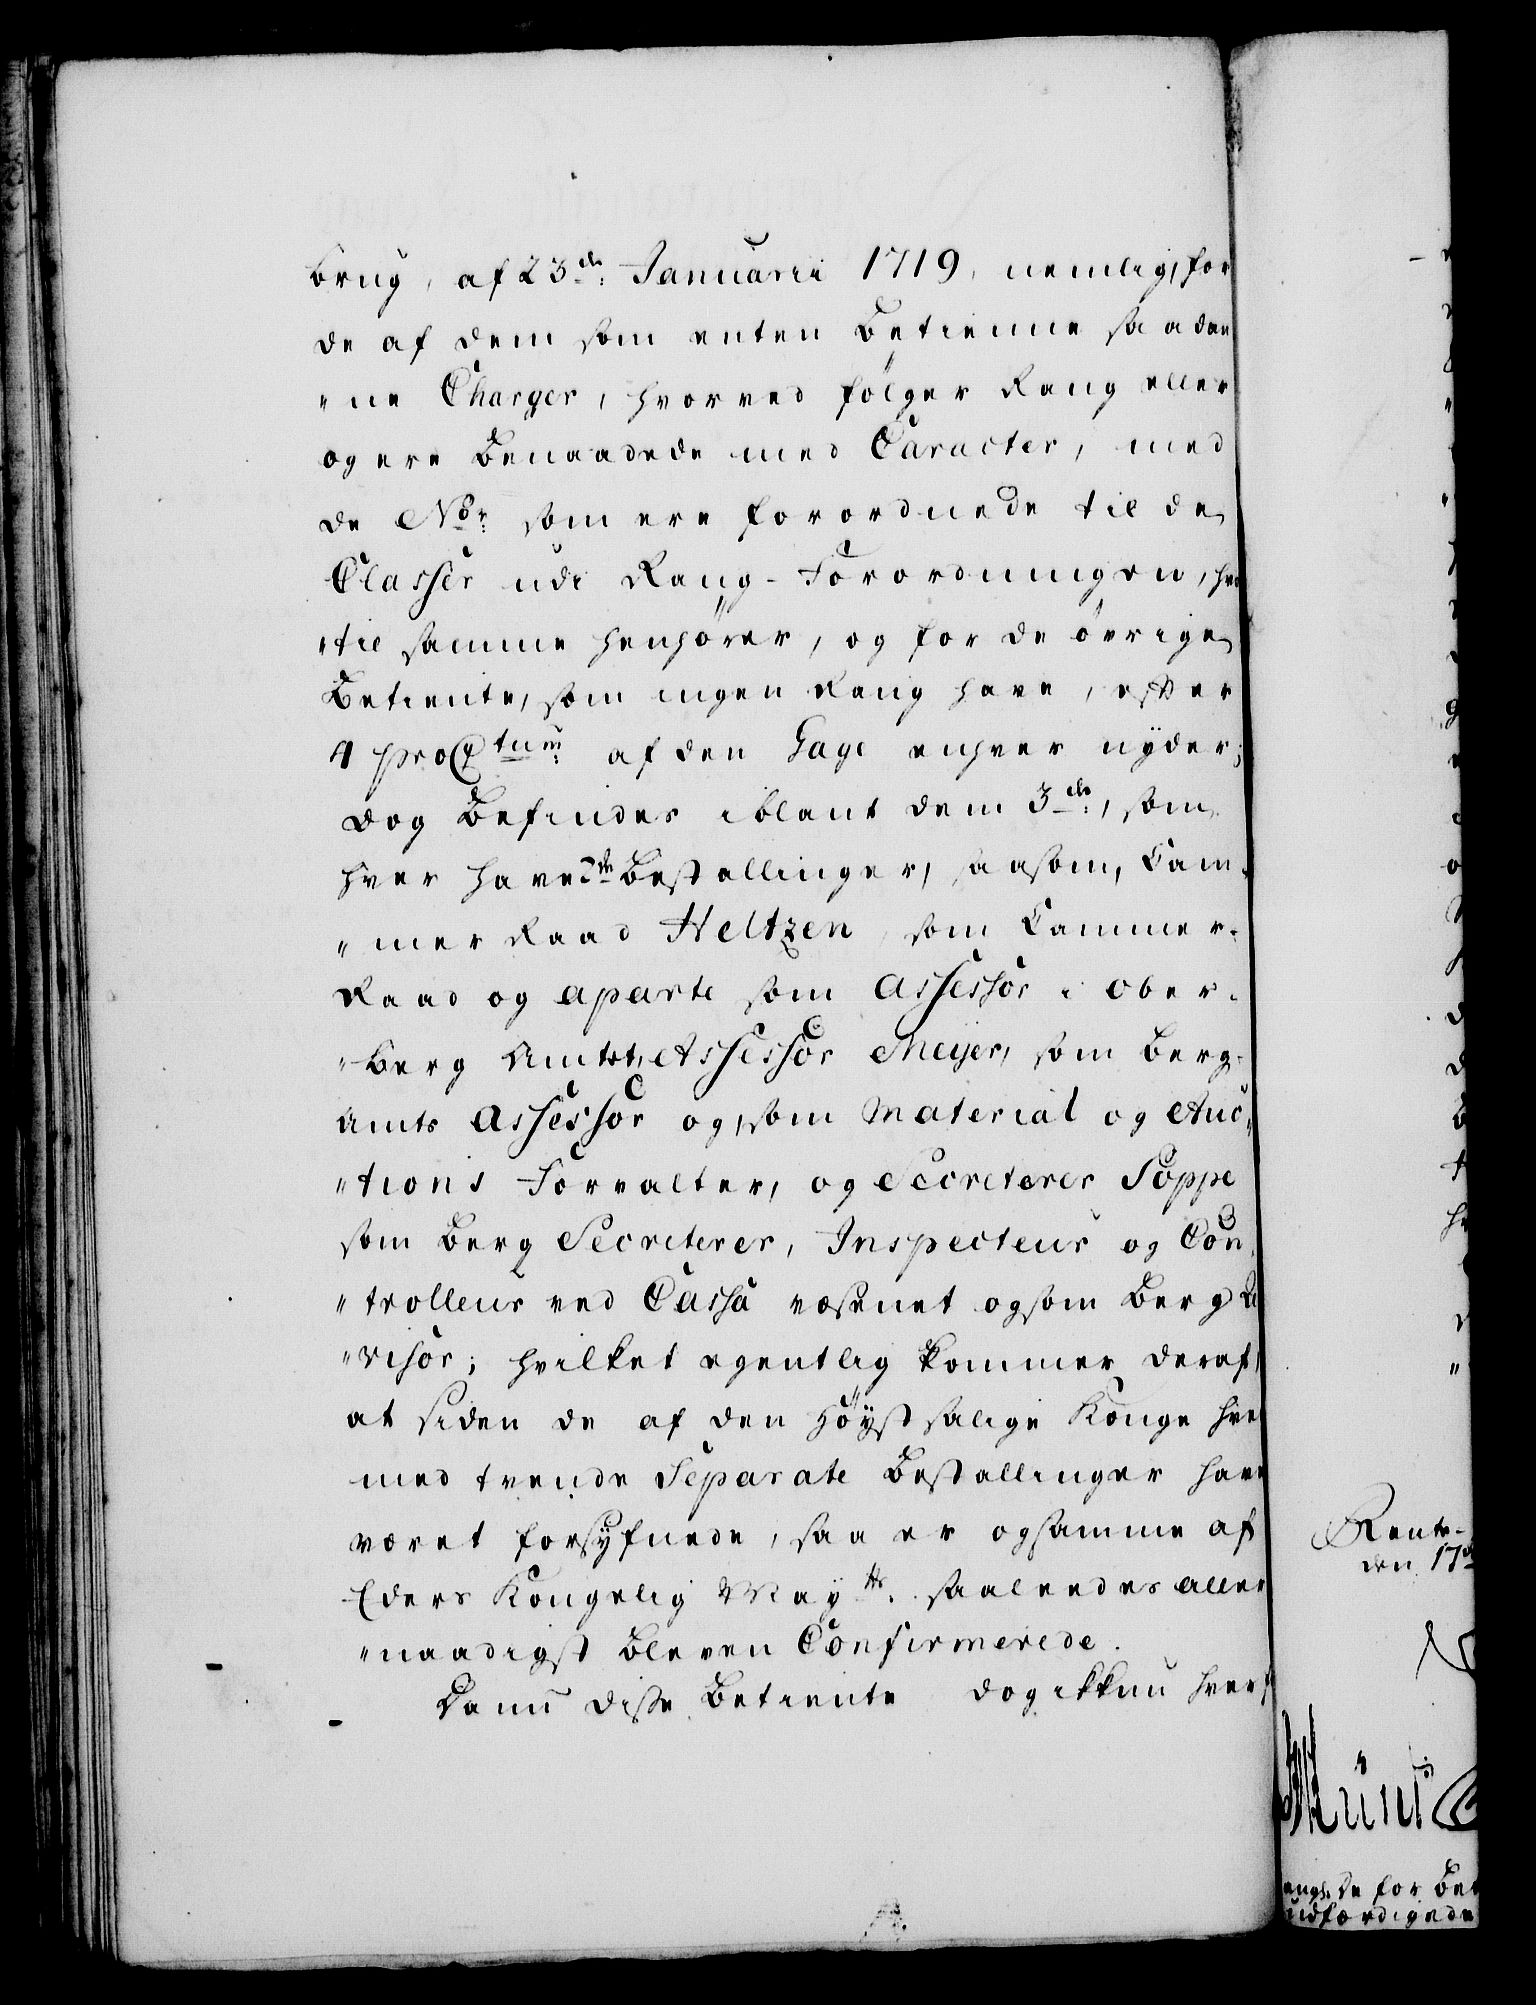 brug, af 23de Januarii 1719, nemlig, for
de af dem som enten betienne saadan
"ne Charger, hvorved følger Rang eller
og ere benaadede med Caracter, med
de No: som ere forordnede til de
Classer udi Rang-Forordningen, hvor
"til samme henhörer, og for de övrige
betiente, som ingen Rang have, effter
4 pro Ctum: af den Gage enhver nÿder;
dog befindes iblant dem 3de:, som
hver have 2de bestallinger, saasom, Cam-
"mer Raad Heltzen, som Cammer-
Raad og aparte som Assessor i Ober-
"berg Amtet, Assessor Meijer, som berg-
Amts Assessor og, som Material og Auc-
"tions Forvalter, og Secreterer Soppe
som berg Secreterer, Inspecteur og Con-
"trolleur ved Cassa væsenet og som berg Re
"visor; hvilket egentlig kommer deraf,
at siden de af den höÿstsalige Konge hver
med tvende Separate bestallinger have
været forsÿfnede, saa er og samme af
Eders Kongelig Maÿts: saaleedes aller
"naadigst bleven Confirmerede.
Da nu disse betiente dog ikkun hver
Rente-
den 17de
for Bet
udfærdigede